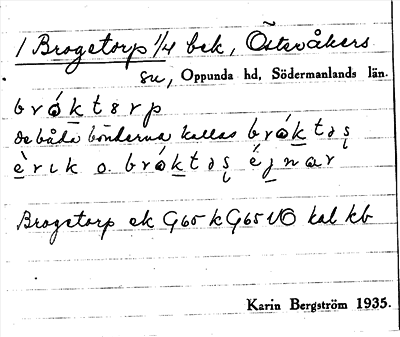 1 Brogetorp 1/4 bek, Österåkers
su, Oppunda hd, Södermanlands län.
bróktərp
de båda bönderna kallas bróktəș
èrɩk o. bróktəș éjnar
Brogetorp ek G65 k G65 VO kal kb
Karin Bergström 1935.